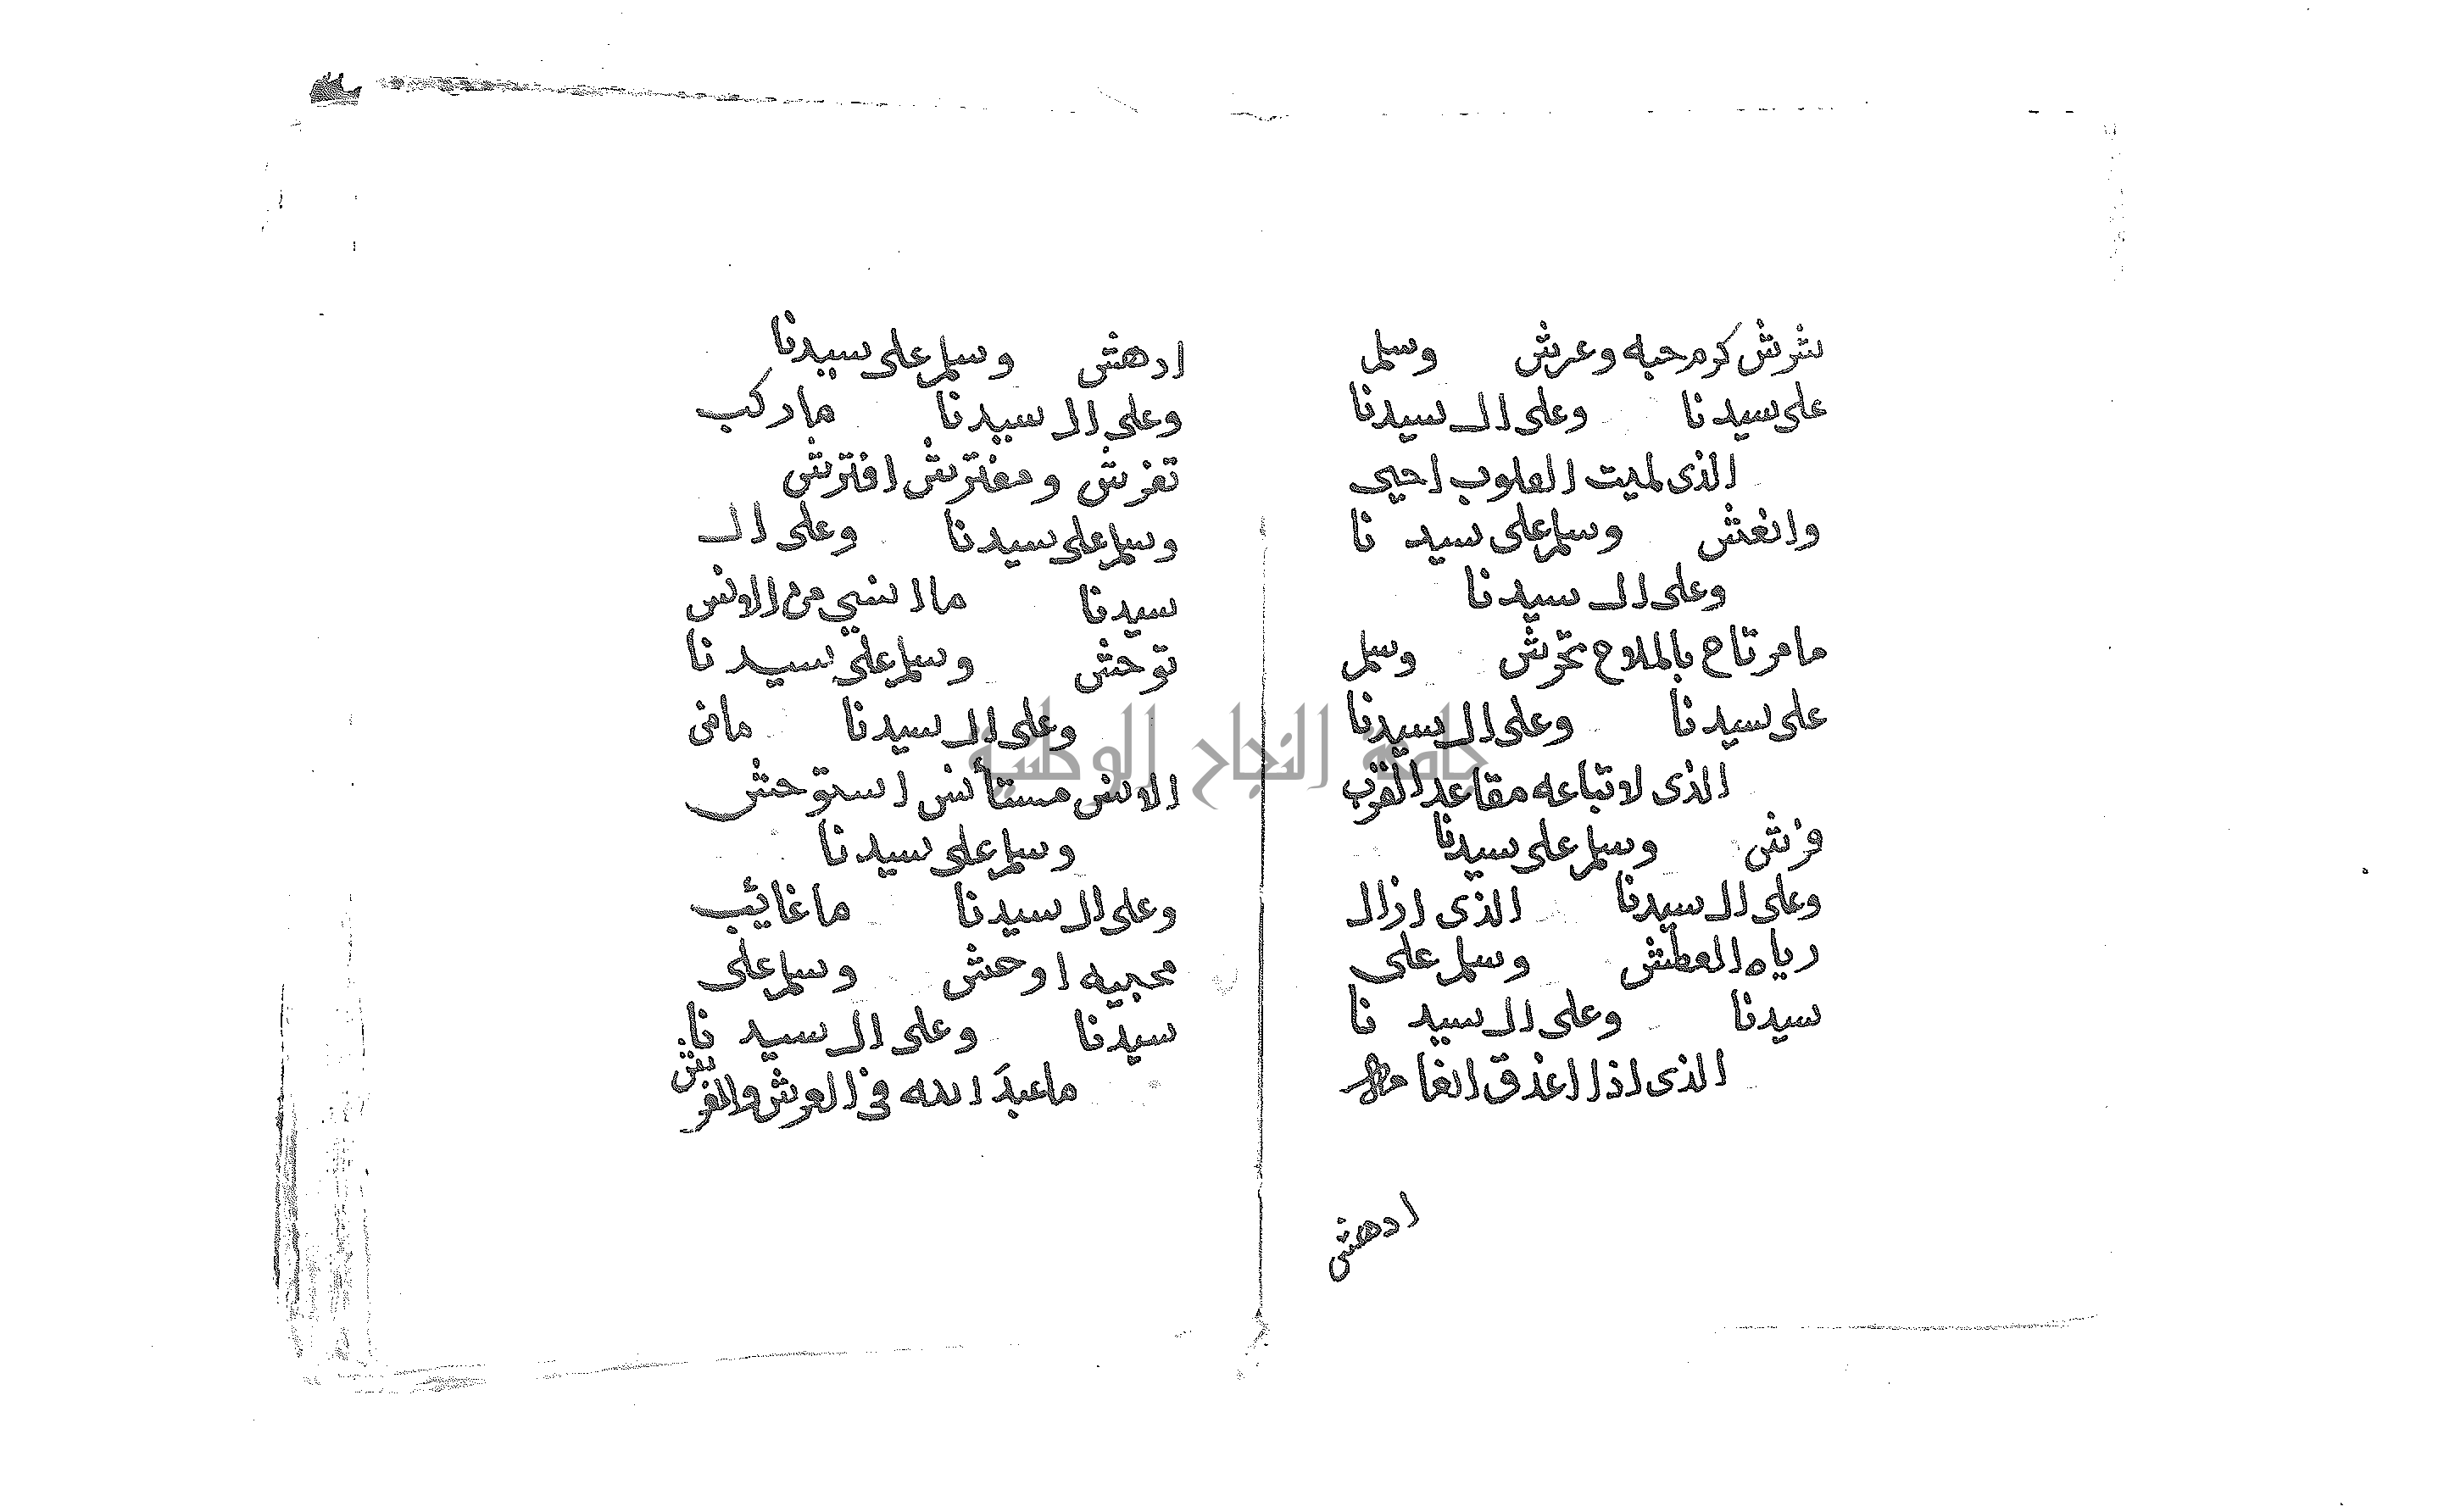 شرش كرم حبه وعرش وسلم
على سيدنا وعلى ال سيدنا
الذى لميت القلوب احيى
وانعش وسلم على سيدنا
وعلى ال سيدنا
ما مرتاح بالملاح تحرش وسلم
على سيدنا وعلى ال سيدنا
الذى لاتباعه مقاعد القرب
فرش وسلم على سيدنا
وعلى ال سيدنا الذى ازال
رياه العطش وسلم على
سيدنا وعلى ال سيدنا
الذى اذا اغذق انعا
ادهش
ادهش وسلم على سيدنا
وعلى ال سيدنا ما ركب
تفرش ومفترش افترش
وسلم على سيدنا وعلى ال
سيدنا ما انسي من الانس
توحش وسلم على سيدنا
وعلى ال سيدنا ما من
الانس مستأنس استوحش
وسلم على سيدنا
وعلى ال سيدنا ما غائب
محبيه اوحش وسلم على
سيدنا وعلى ال سيدنا
ما عبد الله في العرش والفرش
جامعة النجاح الوطنية